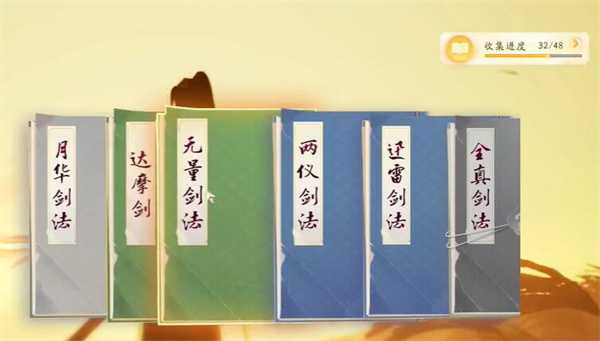 收集进度 32/48
月华剑法
达摩剑
无量剑法
两仪剑法
迅雷剑法
全真剑法